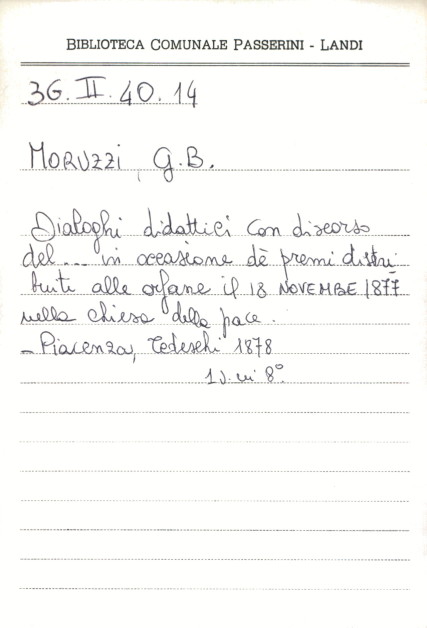 BIBLIOTECA COMUNALE PASSERINI - LANDI
3G. II. 40. 14
MORUZZI, G.B.
Dialoghi didattici con discorso
del... in occasione dè premi distri-
buiti alle orfane il 18 NOVEMBE 1877
nella chiesa della pace.
- Piacenza, Tedeschi 1878
1 v. in 8°.